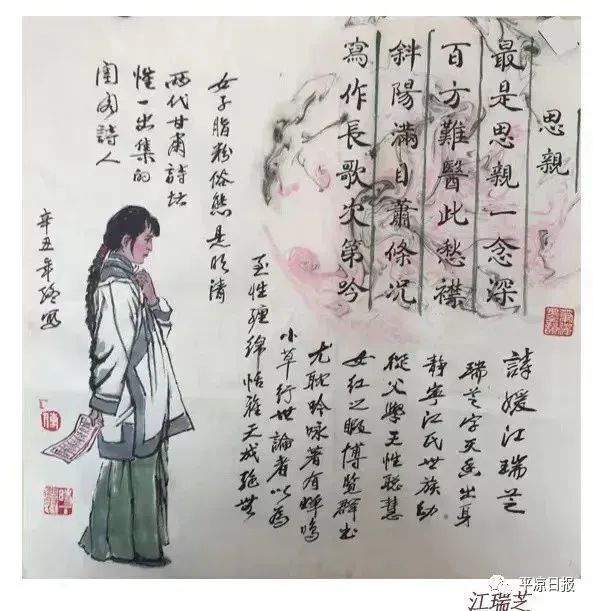 思親
最是思親一念深
百方難醫此愁襟
斜陽滿目蕭條況
寫作長歌次第吟
詩媛江瑞芝
瑞芝字天香出身
静寧江氏世族幼
從父學天性聪慧
女红之暇博览群书
尤耽吟咏著有蝉鸣
小草行世論者以為
至性缠绵恬雅天成绝无
女子脂粉俗態是明清
两代甘肃詩坛
惟一出集的
閨阁詩人
辛丑年
平凉日报
江瑞芝